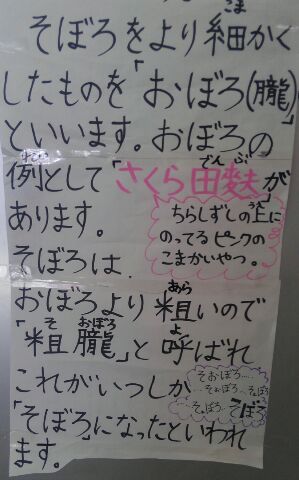 そぼろをより細かく
したものを「おぼろ(朧)」
といいます。おぼろの
例として「さくら田麩」が
あります。
ちらしずしの上に
のってるピンクの
こまかいやつ。
そぼろは、
おぼろより粗いので
「粗朧」と呼ばれ
これがいつしか
そおぼろ……
…そぉぼろ…そぼろ
…そぼろ…そぼろ
「そぼろ」になったといわれ
ます。